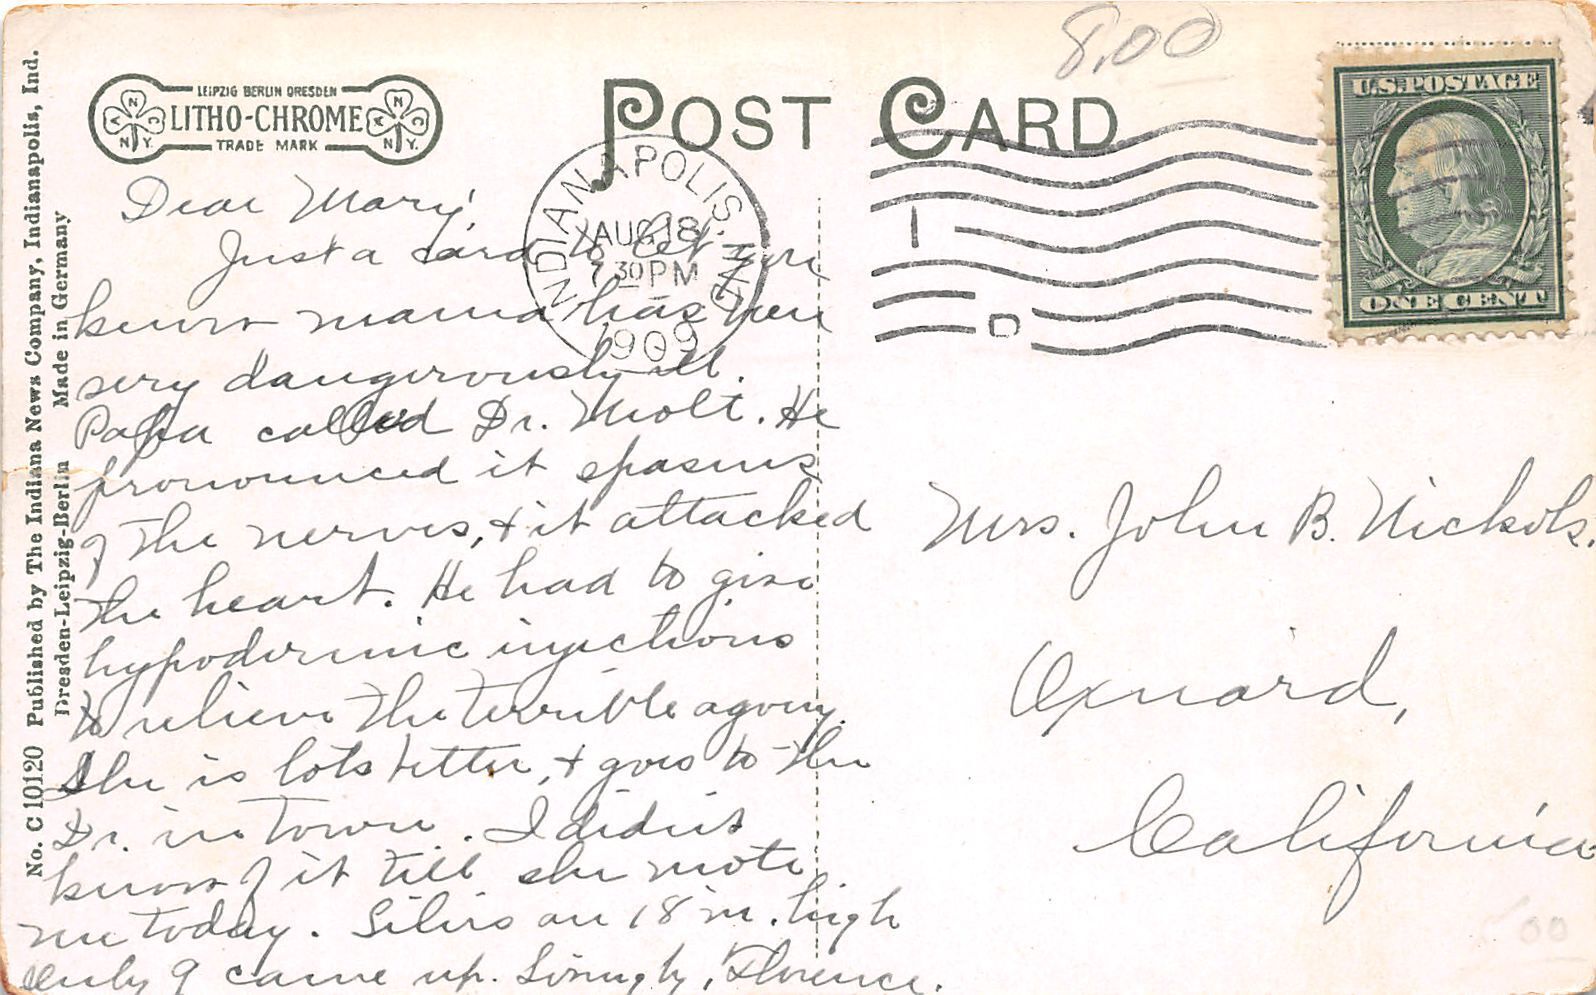 8.00
LEIPZIG BERLIN DRESDEN
LITHO-CHROME
TRADE MARK
A N C N.Y.
A N C N.Y.
POST CARD
U.S. POSTAGE
ONE CENT
INDIANAPOLIS, IND.
AUG 18
7 30 PM
1909
I
D
No. C 10120 Published by The Indiana News Company, Indianapolis, Ind.
Dresden-Leipzig-Berlin Made in Germany
Dear Mary,
Just a card to let you
know mama has been
very dangerously ill.
Papa called Dr. Molt. He
pronounced it spasms
of the nerves, & it attacked
the heart. He had to give
hypodermic injections
to relieve the terrible agony.
She is lots better, & goes to the
Dr. in town. I didn't
know of it till she wrote
me today. on 18 in. high
only 9 came up. Lovingly, Florence.
Mrs. John B. Nichols.
Oxnard,
California
00